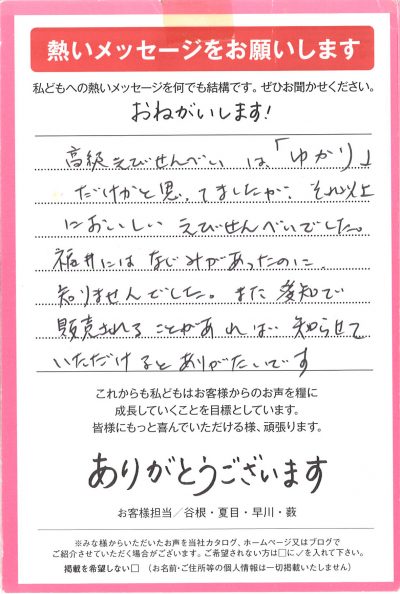 熱いメッセージをお願いします
私どもへの熱いメッセージを何でも結構です。ぜひお聞かせください。
おねがいします!
高級えびせんべい は、「ゆかり」
だけかと思ってましたが、それ以上
においしい えびせんべいでした。
福井には なじみがあったのに、
知りませんでした。また 愛知で
販売される ことがあれば 知らせて
いただけると ありがたいです
これからも私どもはお客様からのお声を糧に
成長していくことを目標としています。
皆様にもっと喜んでいただける様、頑張ります。
ありがとうございます
お客様担当／谷根・夏目・早川・薮
※みな様からいただいたお声を当社カタログ、ホームページ又はブログで
ご紹介させていただく場合がございます。ご希望されない方は□に✓を入れて下さい。
掲載を希望しない□ （お名前・ご住所等の個人情報は一切掲載いたしません）